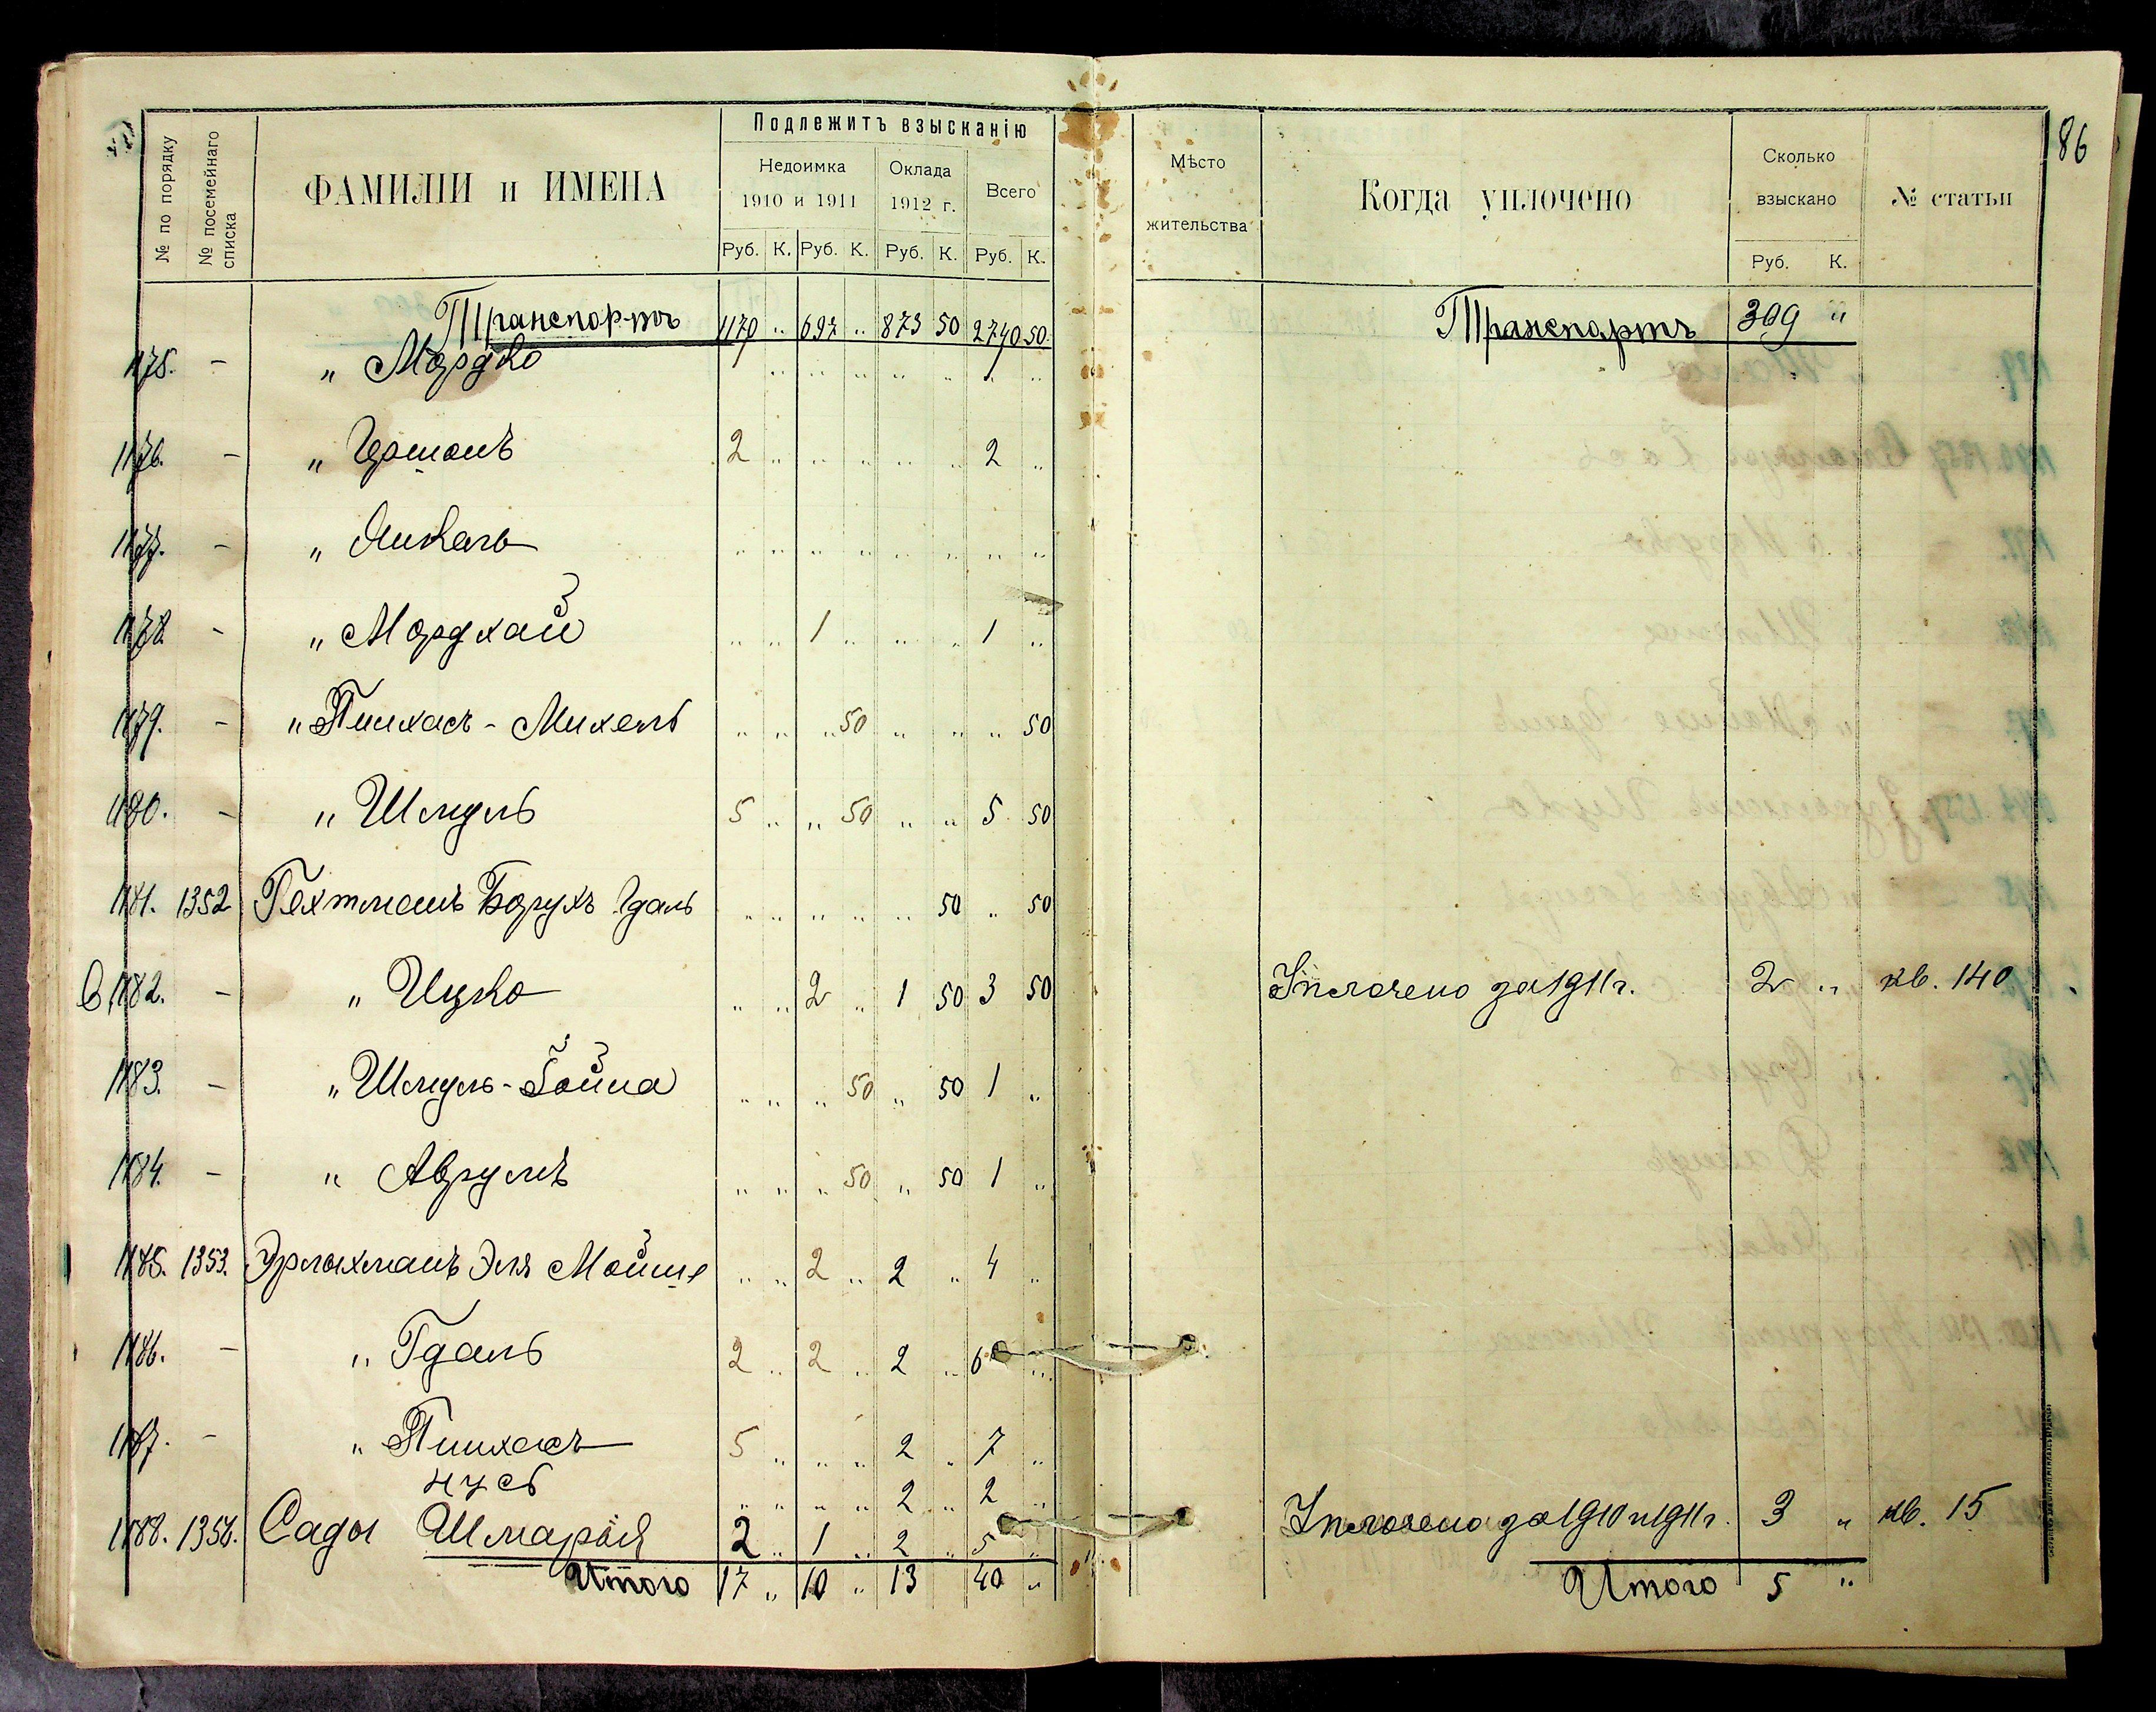 86
№ по порядку
№ посемейнаго списка
ФАМИЛІИ и ИМЕНА
Подлежитъ взысканію
Недоимка
1910 и 1911
Оклада
1912 г.
Всего
Руб. К. Руб. К. Руб. К. Руб. К.
Мѣсто
жительства
Когда уплочено
Сколько
взыскано
Руб. К.
№ статьи
Транспортъ 1170 " 697 " 873 50 2740 50 Транспортъ 309 "
1175. - " Мордко " " " " " " " "
1176. - " Гершонъ 2 " " " " " 2 "
1177. - " Янкель " " " " " " " "
1178. - " Мордхай " " 1 " " " 1 "
1179. - " Пинхасъ - Михель " " " 50 " " " 50
1180. - " Шмуль 5 " " 50 " " 5 50
1181. 1352 Гехтманъ Борухъ Гдаль " " " " " 50 " 50
1182. - " Ицко " " 2 " 1 50 3 50 Уплочено за 1911 г. 2 " кв. 140
1183. - " Шмуль - Бойна " " " 50 " 50 1 "
1184. - " Аврумъ " " " 50 " 50 1 "
1185. 1353. Эрлыхманъ Эля Мойше " " 2 " 2 " 4 "
1186. - " Гдаль 2 " 2 " 2 " 6 "
1187. - " Пинхасъ 5 " " " 2 " 7 "
" " " " 2 " 2 "
1188. 1356. Сады Шмарья 2 " 1 " 2 " 5 " Уплочено за 1910 и 1911 г. 3 " кв. 15
Итого 17 " 10 " 13 40 " Итого 5 "